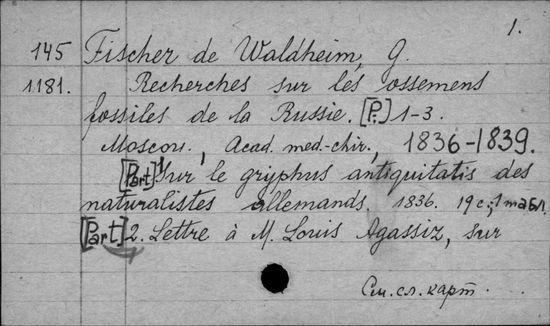 1.
145 Fischer de Waldheim, G.
1181. Recherches sur les ossemens
fossiles de la Russie. [P.] 1-3.
Moscou., Acad. med.-chir., 1836-1839.
[Part] 1 Sur le gryphus antiquitatis des
naturalistes allemands. 1836. 19 с.; 1 табл.
[Part] 2. Lettre à M. Louis Agassiz, sur
См. сл. карт.